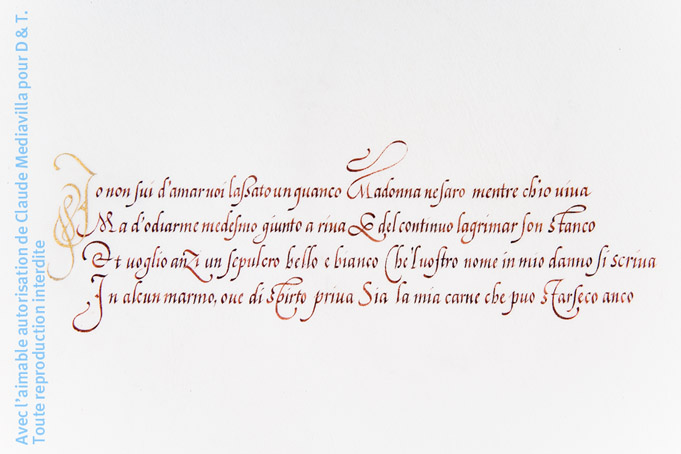 Avec l'aimable autorisation de Claude Mediavilla pour D & T.
Toute reproduction interdite
Io non fui d'amar uoi laſsato un quanco Madonna ne ſaro mentre ch'io uiua
Ma d'odiar me medeſmo giunto a riua E del continuo lagrimar ſon stanco
Et voglio anzi un ſepulcro bello e bianco Che'l uoſtro nome in mio danno ſi scriua
In alcun marmo, oue di spirto priua Sia la mia carne che puo star ſeco anco